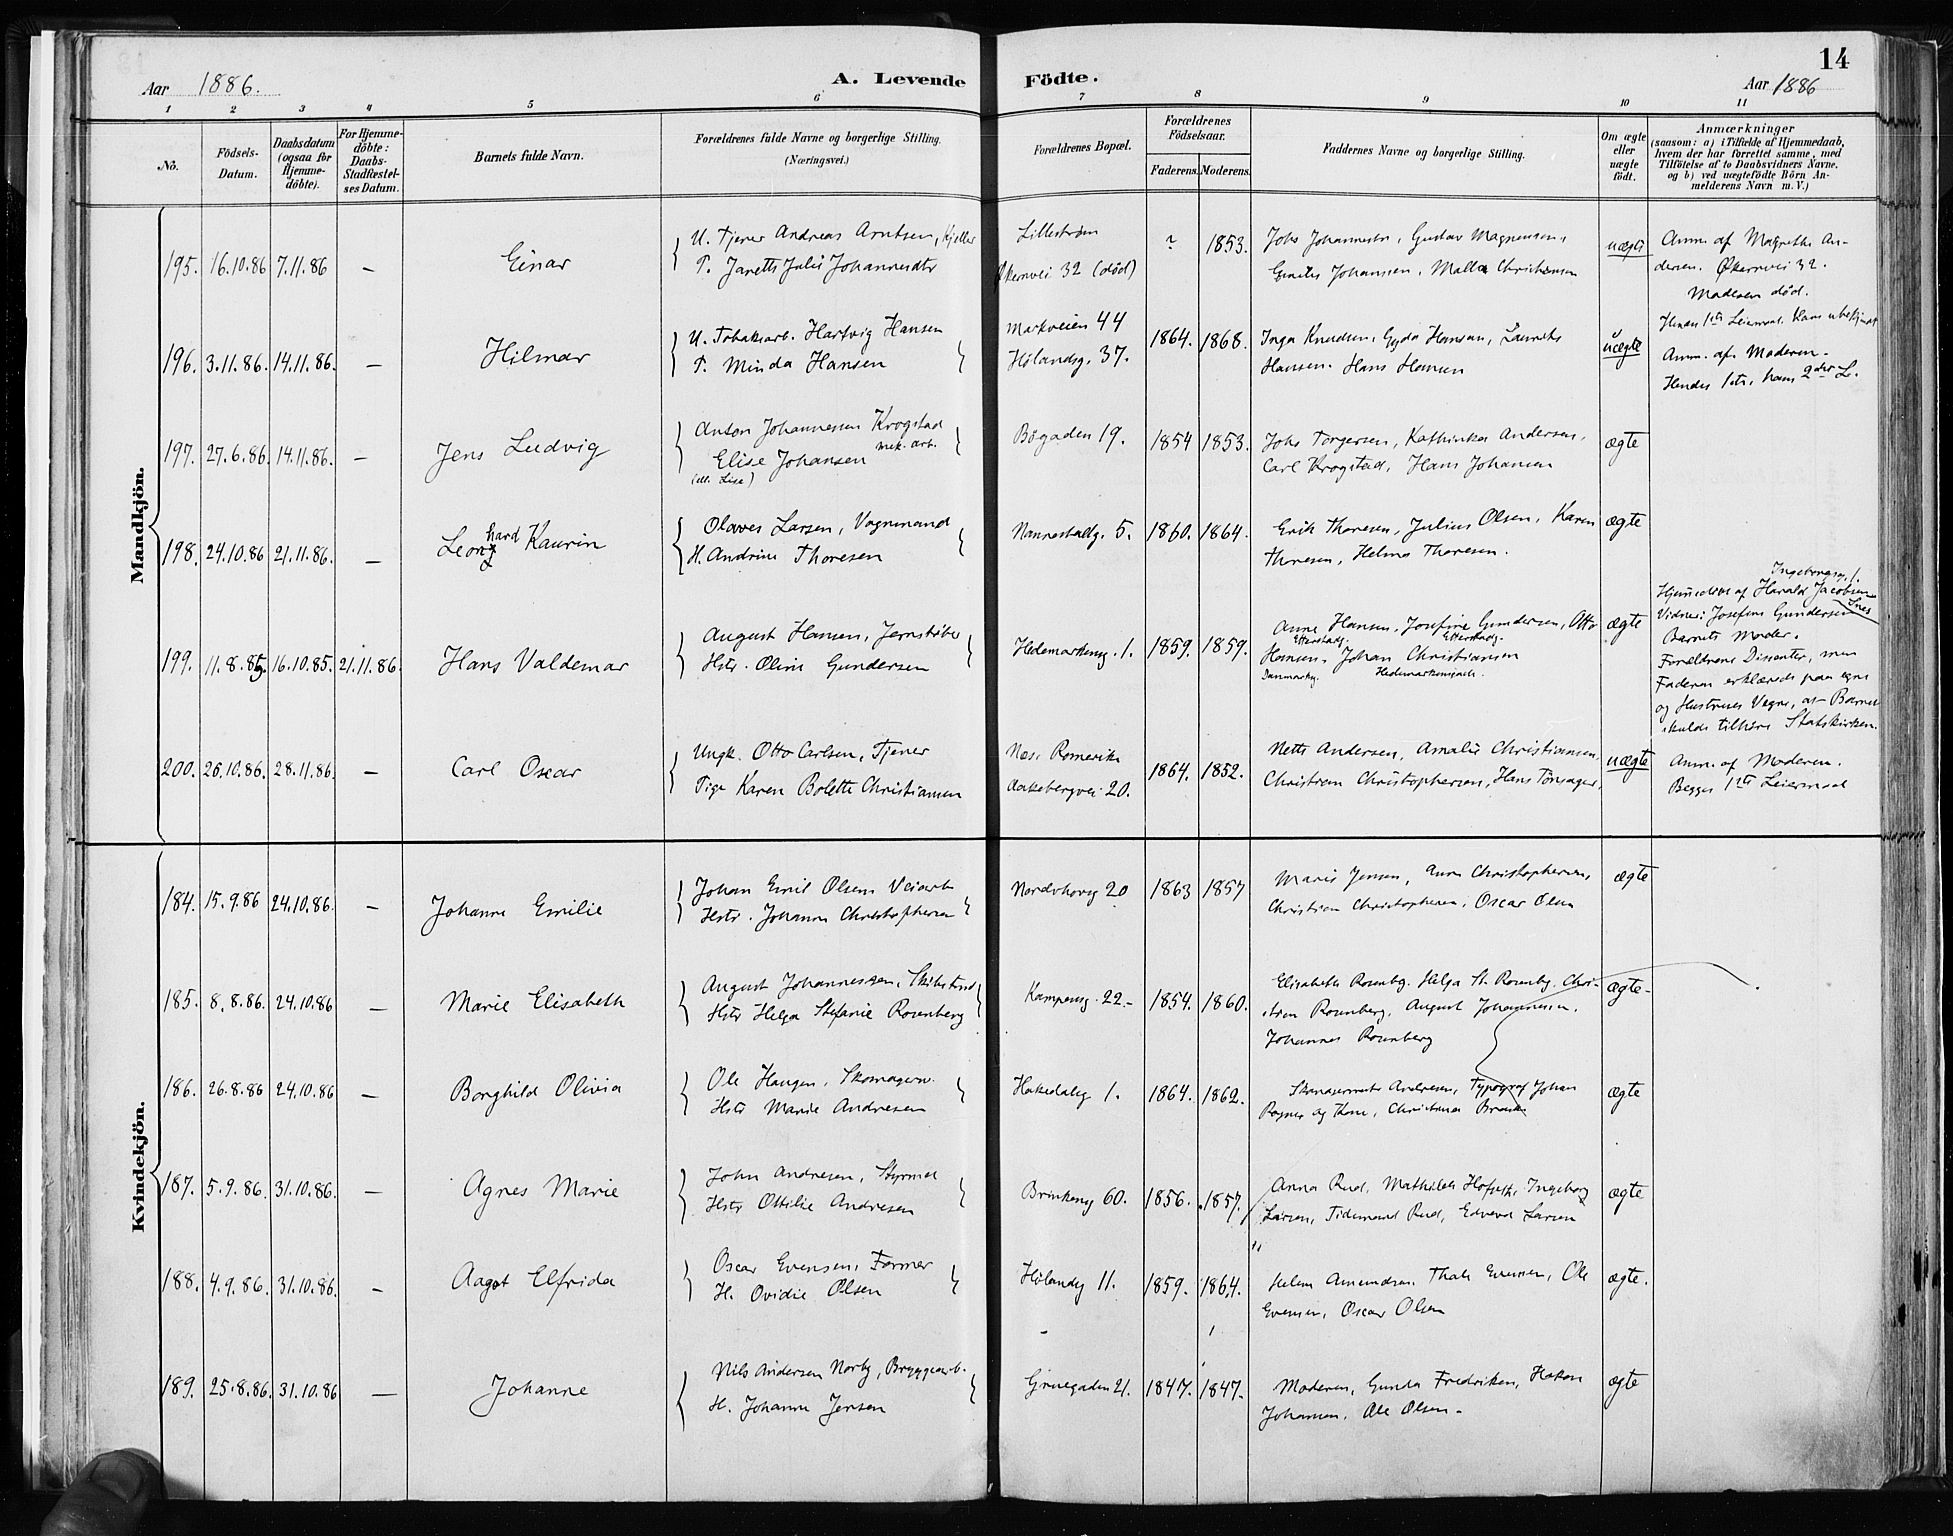 14
Aar 1886.
A. Levende Födte.
Aar 1886
1 2 3 4 5 6 7 8 9 10 11
No.
Födsels-
Datum.
Daabsdatum
(ogsaa for
Hjemme-
döbte).
For Hjemme-
döbte:
Daabs-
Stadfæstel-
ses Datum.
Barnets fulde Navn.
Forældrenes fulde Navne og borgerlige Stilling.
(Næringsvei.)
Forældrenes Bopæl.
Forældrenes
Födselsaar.
Faderens. Moderens.
Faddernes Navne og borgerlige Stilling.
Om ægte
eller
uægte
födt.
Anmærkninger
(saasom: a) i Tilfælde af Hjemmedaab,
hvem der har forrettet samme, med
Tilföielse af to Daabsvidners Navne,
og b) ved uægtefödte Börn An-
melderens Navn m. V.)
Mandkjön.
195. 16.10.86 7.11.86 – Einar
U. Tjener Andreas Arntsen, Kjeller
P. Janette Julie Johannesdtr
Lillestrøm
Økernvei 32 (död)
? 1853.
Johs Johannesen, Gustav Magnusen,
Emilie Johansen, Malla Christensen
uægte
Anm. af Magrethe An-
dersen. Økernvei 32.
Moderen död.
196. 3.11.86. 14.11.86. – Hilmar
U. Tobaksarb. Hartvig Hansen
P. Minda Hansen
Markveien 44
Hölandsg. 37.
1864. 1868.
Inga Knudsen, Gyda Hansen, Lauritz
Hansen. Hans Hansen
uægte
Hendes 1ste Leiermaal. Hans ubekjendt
Anm. af Moderen.
Hendes 1ste, hans 2det L.
197. 27.6.86. 14.11.86. – Jens Ludvig
Anton Johannesen Krogstad
mek. arb.
Elise Johansen
(ell. Lise)
Bögaden 19.
1854 1853.
Johs Torgersen, Kathinka Andersen,
Carl Krogstad, Hans Johansen
ægte
198. 24.10.86 21.11.86. – Leonhard Kaurin
Olaves Larsen, Vognmand
H. Andrine Thoresen
Nannestadg. 5.
1860. 1864.
Erik Thoresen, Julius Olsen, Karen
Thoresen, Helma Thoresen.
ægte
199. 11.8.85. 16.10.85. 21.11.86. Hans Valdemar
August Hansen, Jernstöber
Hstr. Oline Gundersen
Hedemarkeng. 1.
1859. 1859.
Anne Hansen, Josefine Gundersen, Otto
Etterstadg. Etterstadg.
Hansen, Johan Christiansen
Danmarksg. Hedemarkensgade.
ægte
Ingeborgsg. 1.
Hjemmedöbt af Harald Jacobsen
Vidner: Josefine Gundersen
Barnets Moder.
Forældrene Dissenter, men
Faderen erklærede paa egne
og Hustrues Vegne, at Barnet
skulde tilhöre Statskirken.
200. 26.10.86. 28.11.86. – Carl Oscar
Ungk. Otto Carlsen, Tjener
Pige Karen Bolette Christiansen
Nes. Romerike
Aakebergvei 20.
1864. 1852.
Nette Andersen, Amalie Christiansen,
Christian Christophersen, Hans Tönsager,
uægte
Anm. af Moderen.
Begges 1ste Leiermaal
Kvindekjön.
184. 15.9.86 24.10.86. – Johanne Emilie
Johan Emil Olsen Veiarb.
Hstr. Johanne Christophersen
Nordvhovg 20
1863 1857
Marie Jensen, Anna Christophersen,
Christian Christophersen, Oscar Olsen
ægte
185. 8.8.86. 24.10.86 – Marie Elisabeth
August Johannessen, Skibstöm
Hstr Helga Stefanie Rosenberg
Kampeng. 22.–
1854. 1860.
Elisabeth Rosenbg. Helga St. Rosenbg. Chri-
stian Rosenberg, August Johannessen.
Johannes Rosenberg
ægte.
186. 26.8.86 24.10.86 – Borghild Olivia
Ole Haugen, Skomagersv.
Hstr Marie Andresen
Hakedalsg 1.
1864. 1862.
Skomagermester Andresen, Typograf Johan
og Kone, Christine
ægte
187. 5.9.86. 31.10.86. – Agnes Marie
John Andresen, Styrmd
Hstr Ottilie Andresen
Brinkeng 60.
1856. 1857.
Anna Rud, Mathilde Hofseth, Ingeborg
Larsen, Tidemand Rud, Edvard Larsen
ægte
188. 4.9.86. 31.10.86. – Aagot Elfrida
Oscar Evensen, Former
H. Ovidie Olsen
Hölandg 11.
1859. 1864.
Helene Amundsen, Thale Evensen, Ole
Evensen, Oscar Olsen
ægte.
189. 25.8.86. 31.10.86 – Johanne
Nils Andersen Norby, Bryggearb.
H. Johanne Jensen
Gruegaden 21.
1847. 1847.
Moderen, Gunda Fredriksen, Hakon
Johansen, Ole Olsen.
ægte